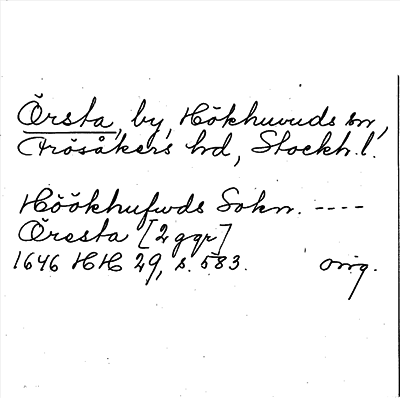 Örsta, by, Hökhuvuds sn,
Frösåkers hd, Stockh. l.
Höökhufwds Sokn. ----
Öresta [2 ggr]
1646 HH 29, s. 583. orig.